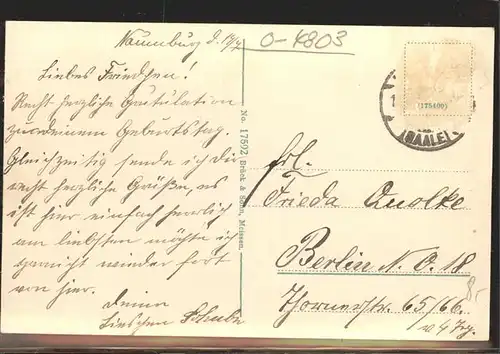 Naumburg d. 17/7
O-4803
Liebes Friedchen!
Recht herzliche Gratulation
zu deinem Geburtstag.
Gleichzeitig sende ich dir
recht herzliche Grüße, es
ist hier einfach herrlich
am liebsten möchte ich
garnicht wieder fort
von hier.
Deine
Lieschen
No. 17592, Brück & Sohn, Meissen.
(175400)
(SAALE)
Frl.
Frieda Quolke
Berlin N. O. 18.
Thornerstr. 65/66.
v 4 Trp.